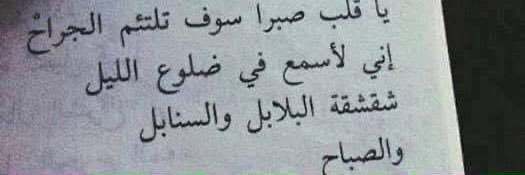 يا قلب صبرا سوف تلتئم الجراحْ
إني لأسمع في ضلوع الليل
شقشقة البلابل والسنابل
والصباح